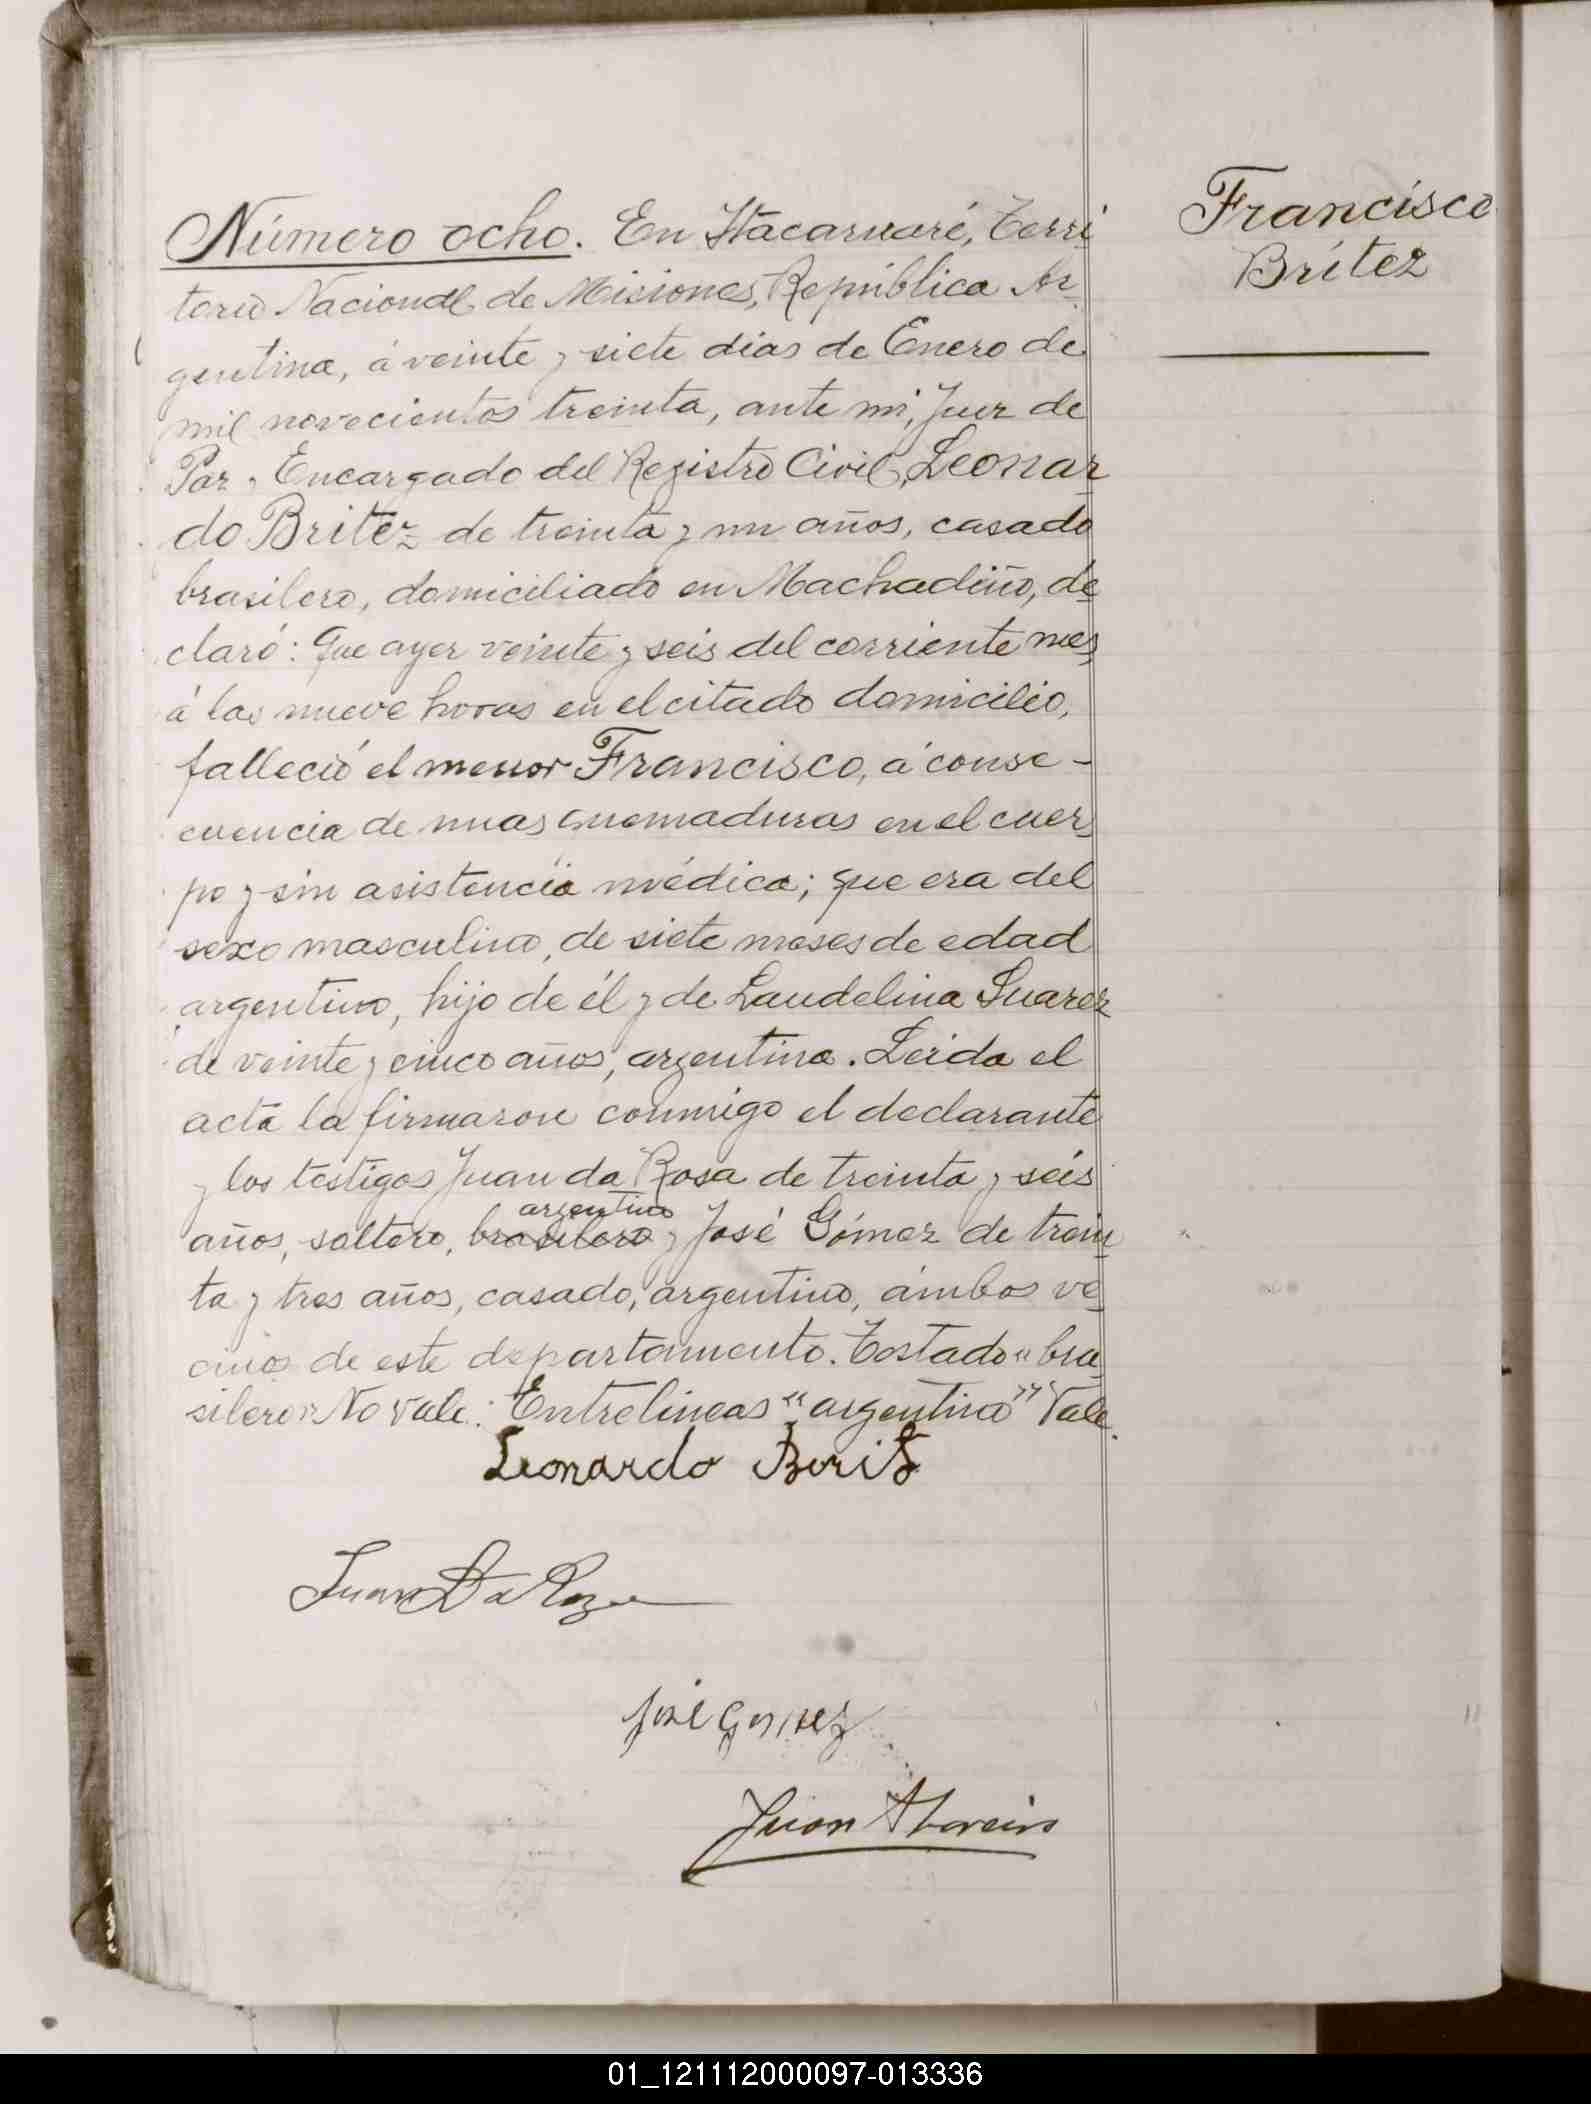 Número ocho. En Itacaruaré, Terri
Francisco
Brítez
torio Nacional de Misiones, República Ar-
gentina, á veinte y siete dias de Enero de
mil novecientos treinta, ante mi, Juez de
Paz, Encargado del Registro Civil, Leonar-
do Britez de treinta y un años, casado
brasilero, domiciliado en Machadiño, de-
claró: Que ayer veinte y seis del corriente mes,
á las nueve horas en el citado domicilio,
falleció el menor Francisco, á conse-
cuencia de unas quemaduras en el cuer-
po y sin asistencia médica; que era del
sexo masculino, de siete meses de edad
argentino, hijo de él y de Laudelina Suarez
de veinte y cinco años, argentina. Leida el
acta la firmaron conmigo el declarante
y los testigos Juan da Rosa de treinta y seis
argentino
años, soltero, brasilero y José Gómez de trein-
ta y tres años, casado, argentino, ámbos ve-
cinos de este departamento. Testado "bra-
silero" No vale: Entrelineas "argentino" Vale.
Leonardo
Juan Da Roza
José Gomez
Juan
01_121112000097-013336